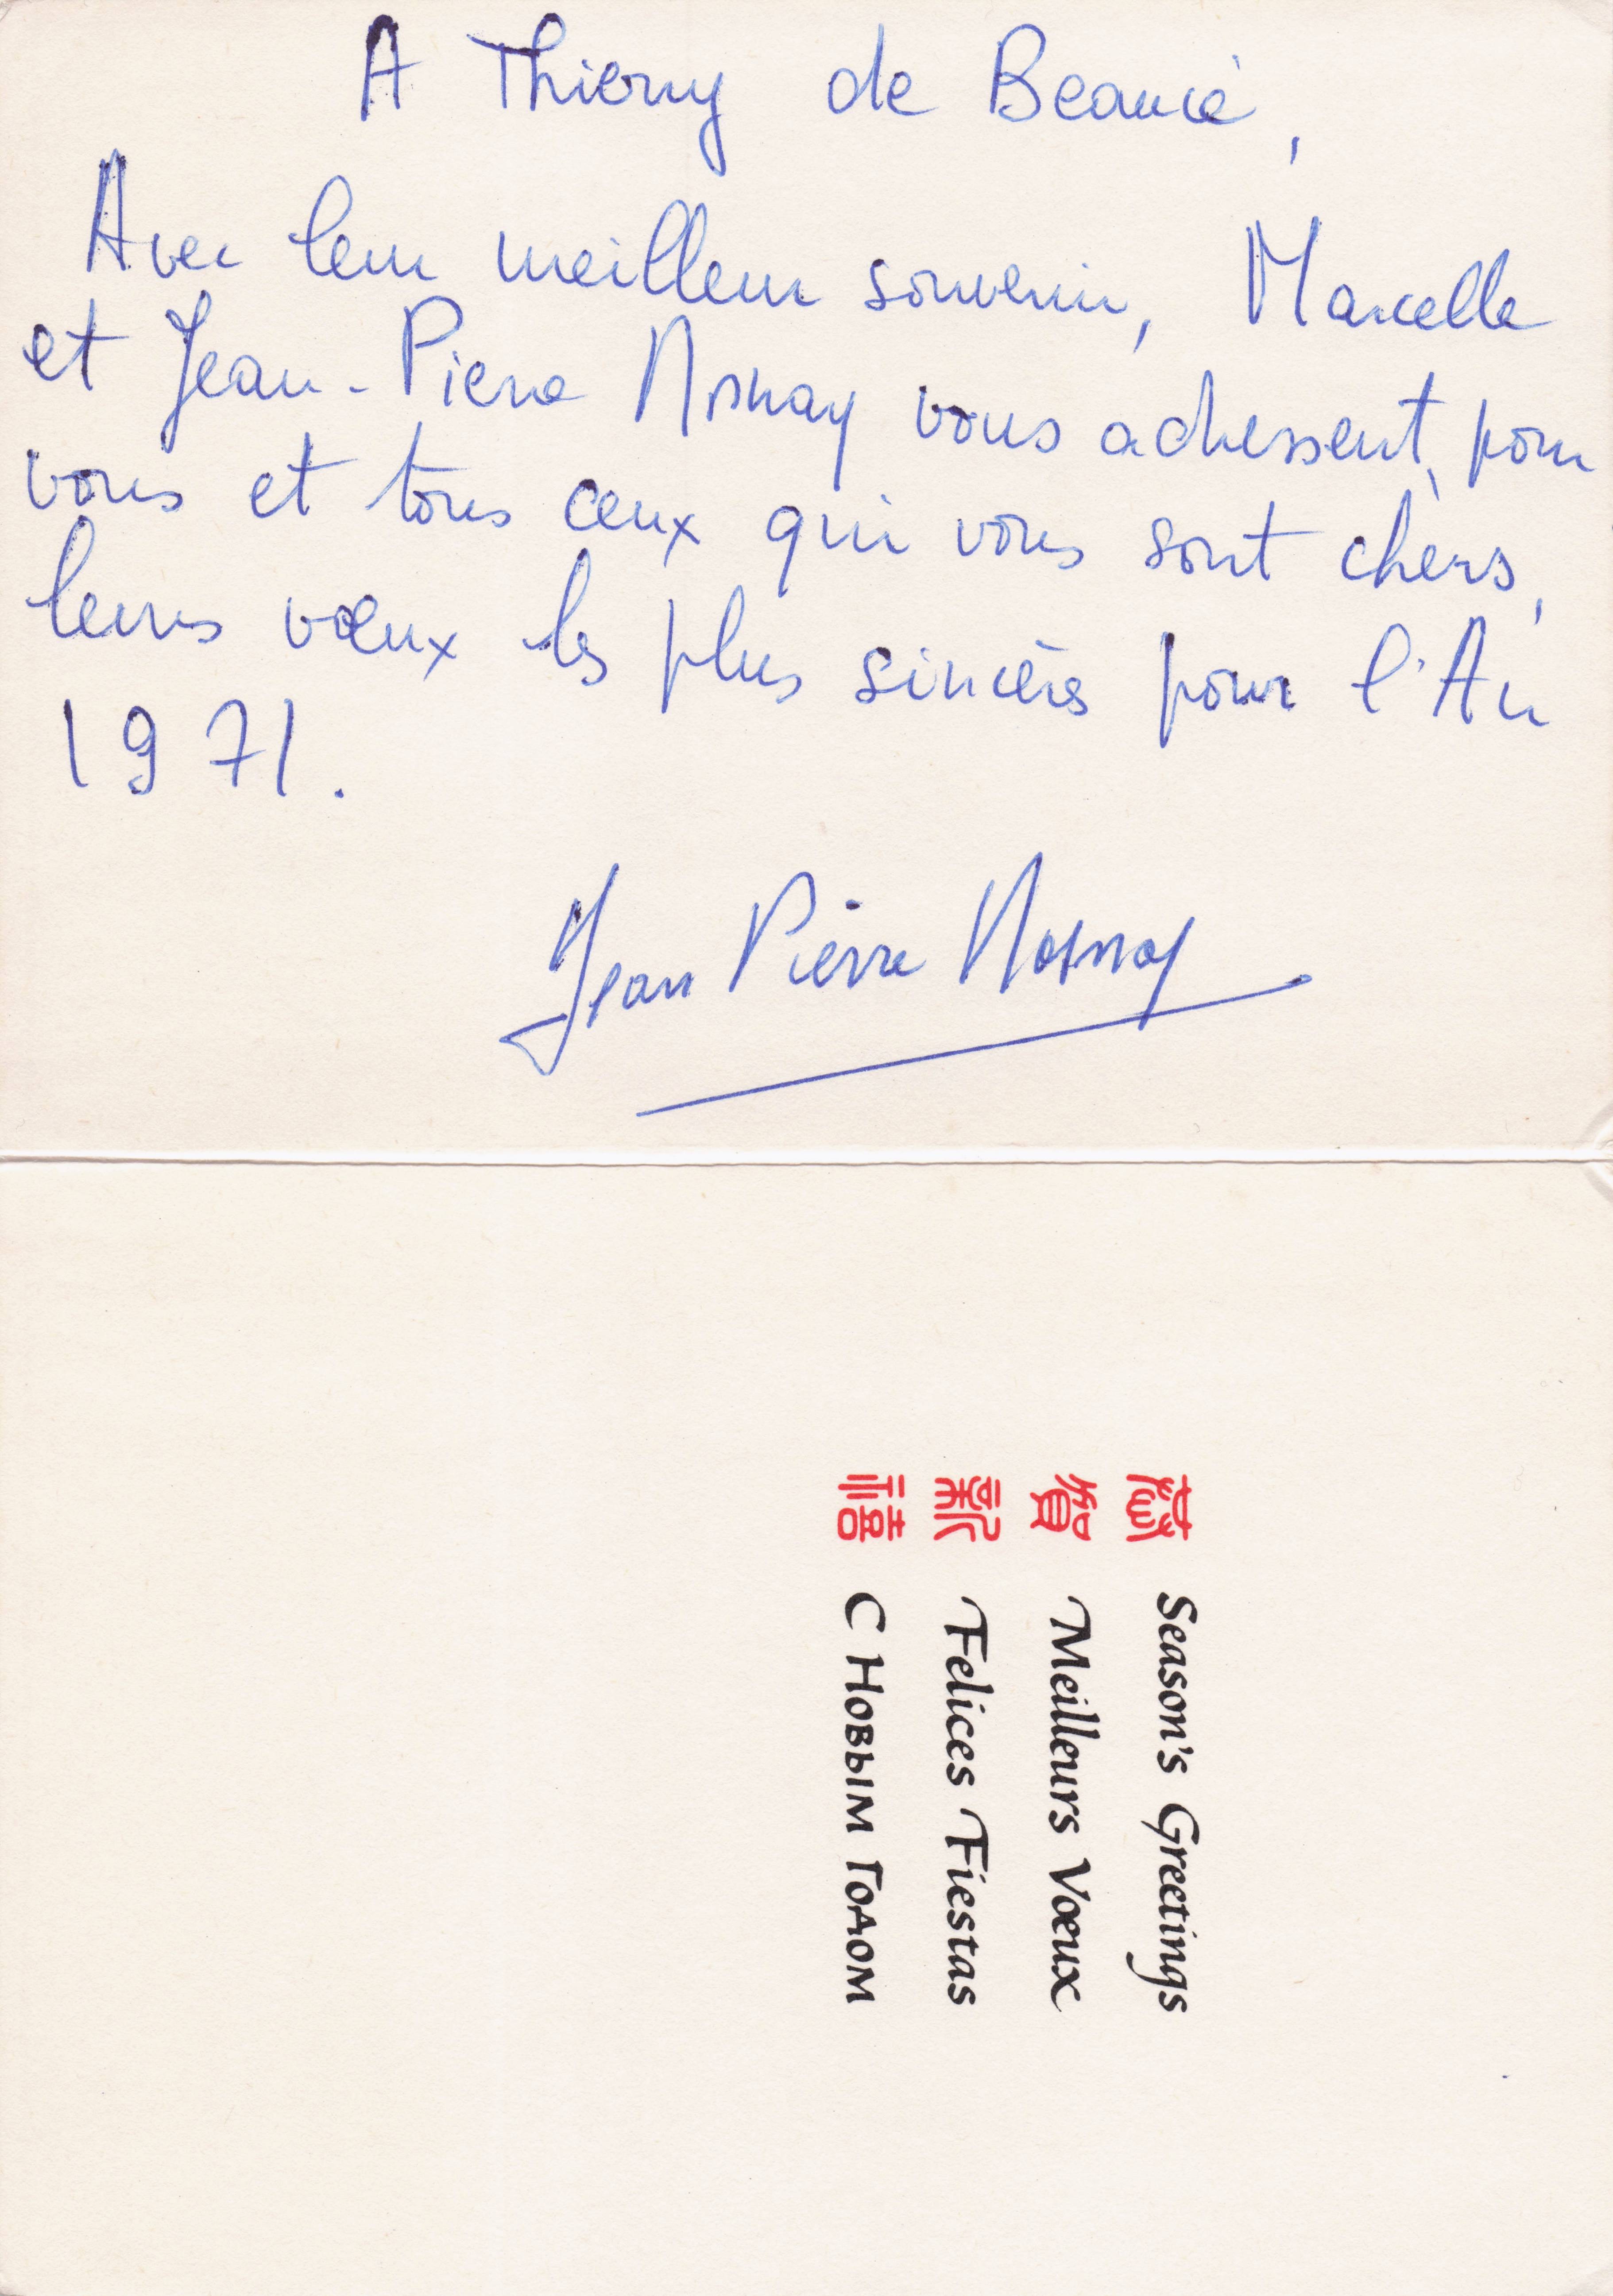 A Thierry de Beaucé,
Avec leur meilleur souvenir, Marcelle
et Jean-Pierre Nosnay vous adressent, pour
vous et tous ceux qui vous sont chers,
leurs vœux les plus sincères pour l'An
1971.
Jean Pierre Nosnay
恭 Season's Greetings
賀 Meilleurs Vœux
新 Felices Fiestas
禧 С Новым Годом